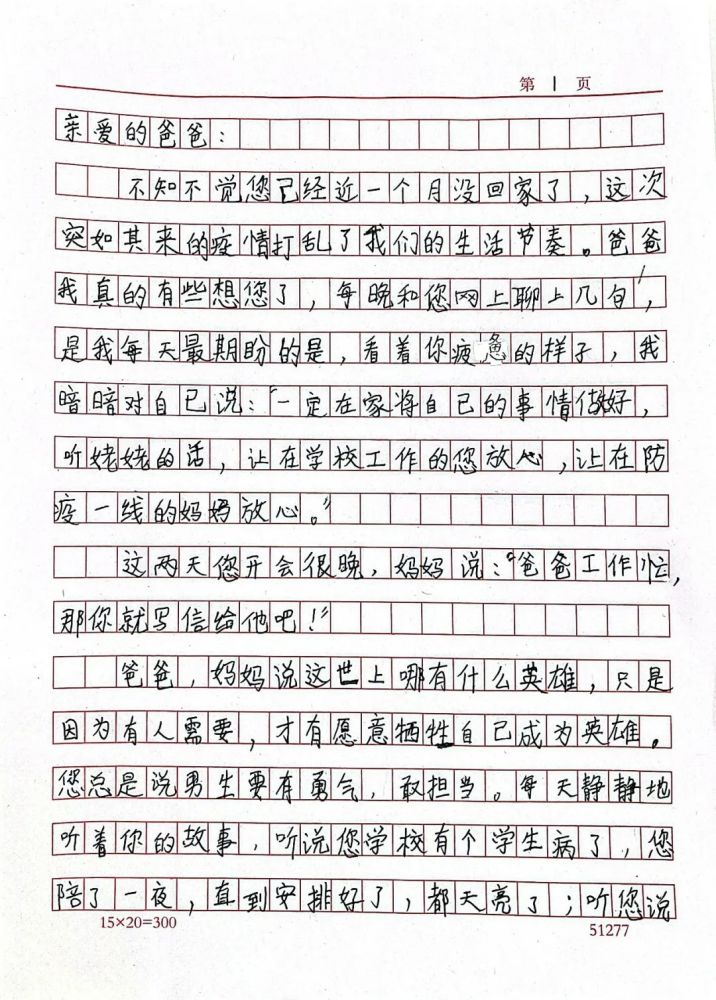 第 1 页
亲爱的爸爸：
不知不觉您已经近一个月没回家了，这次
突如其来的疫情打乱了我们的生活节奏。爸爸
我真的有些想您了，每晚和您网上聊上几句，
是我每天最期盼的是，看着你疲惫的样子，我
暗暗对自己说：“一定在家将自己的事情做好，
听姥姥的话，让在学校工作的您放心，让在防
疫一线的妈妈放心。”
这两天您开会很晚，妈妈说：“爸爸工作忙，
那你就写信给他吧！”
爸爸，妈妈说这世上哪有什么英雄，只是
因为有人需要，才有愿意牺牲自己成为英雄。
您总是说男生要有勇气，敢担当。每天静静地
听着你的故事，听说您学校有个学生病了，您
陪了一夜，直到安排好了，都天亮了；听您说
15×20=300 51277